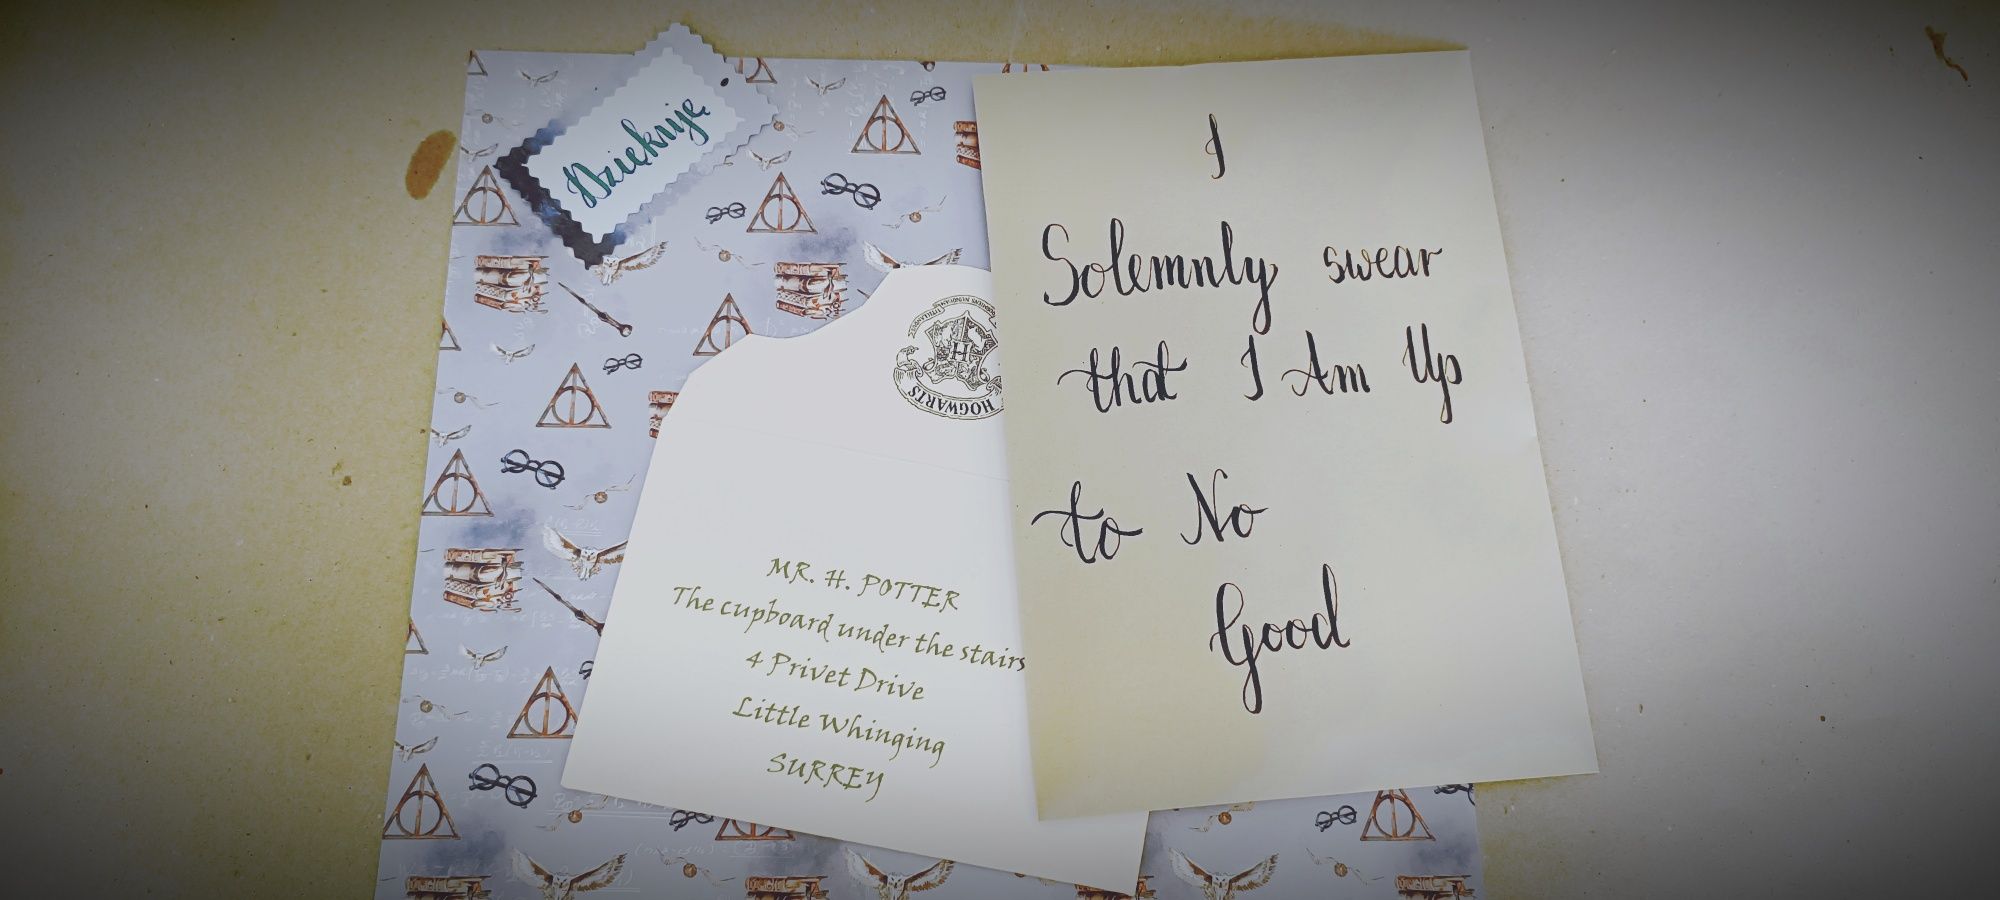 Dziękuję
HOGWARTS
H
MR. H. POTTER
The cupboard under the stairs
4 Privet Drive
Little Whinging
SURREY
I
Solemnly swear
that I Am Up
to No
Good